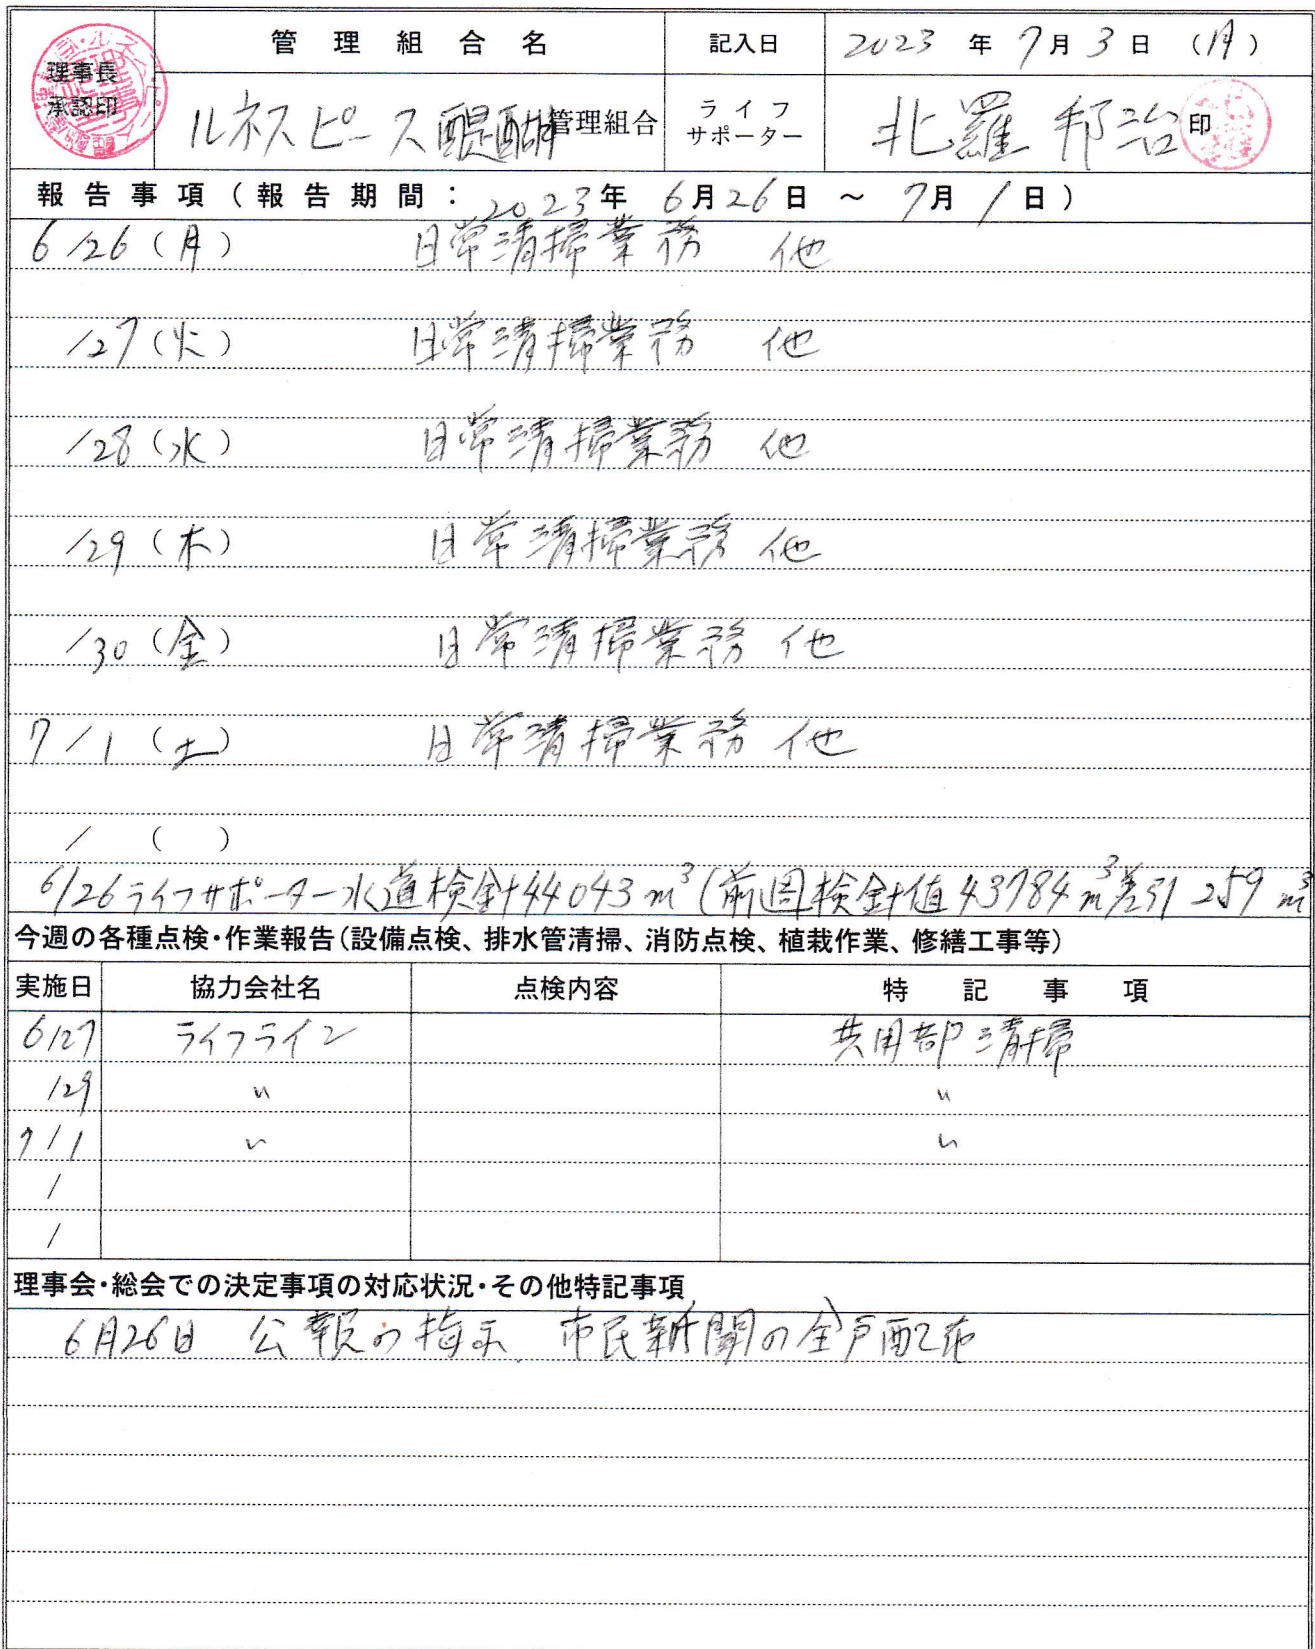 理事長
承認印
管理組合名
記入日
2023年7月3日(月)
ルネスピース醍醐管理組合
ライフ
サポーター
北羅邦治 印
報告事項(報告期間:2023年6月26日~7月1日)
6/26(月) 日常清掃業務 他
/27(火) 日常清掃業務 他
/28(水) 日常清掃業務 他
/29(木) 日常清掃業務 他
/30(金) 日常清掃業務 他
7/1(土) 日常清掃業務 他
/ ( )
6/26ライフサポーター水道検針44043m³(前週検針値43784m³差引259m³
今週の各種点検・作業報告(設備点検、排水管清掃、消防点検、植栽作業、修繕工事等)
実施日 協力会社名 点検内容 特記事項
6/27 ライフライン 共用部清掃
/29 〃 〃
7/1 〃 〃
/
/
理事会・総会での決定事項の対応状況・その他特記事項
6月26日 公報の掲示、市民新聞の全戸配布